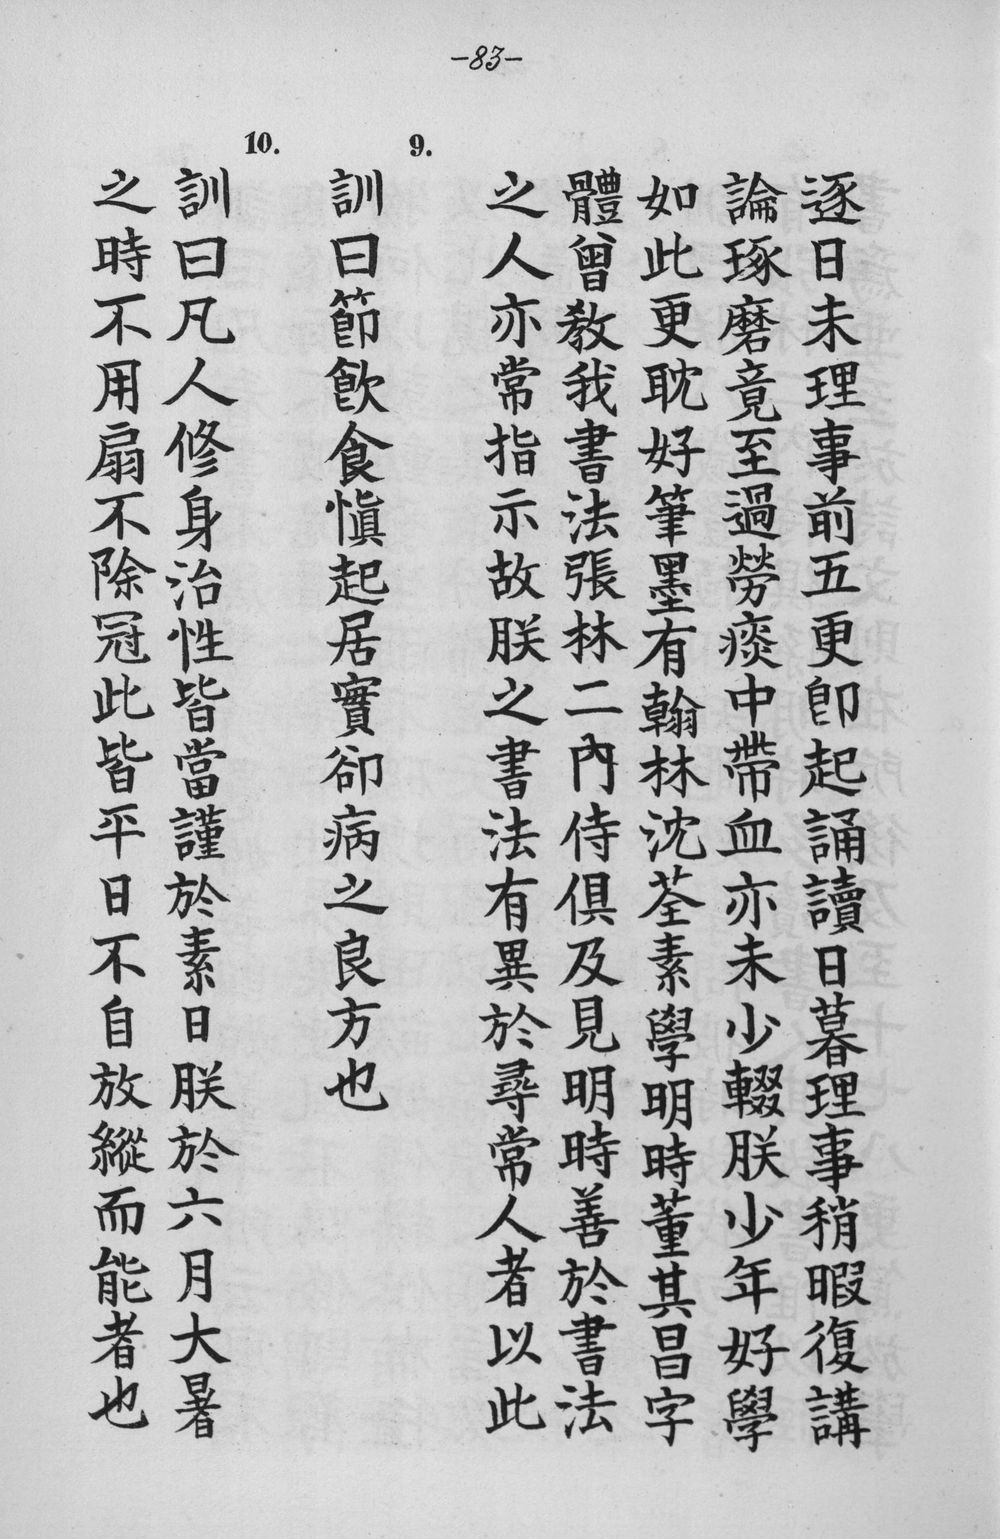 -83-
逐日未理事前五更卽起誦讀日暮理事稍暇復講
論琢磨竟至過勞痰中帶血亦未少輟朕少年好學
如此更耽好筆墨有翰林沈荃素學明時董其昌字
體曾敎我書法張林二內侍俱及見明時善於書法
之人亦常指示故朕之書法有異於尋常人者以此
9.
訓曰節飮食愼起居實卻病之良方也
10.
訓曰凡人修身治性皆當謹於素日朕於六月大暑
之時不用扇不除冠此皆平日不自放縱而能者也